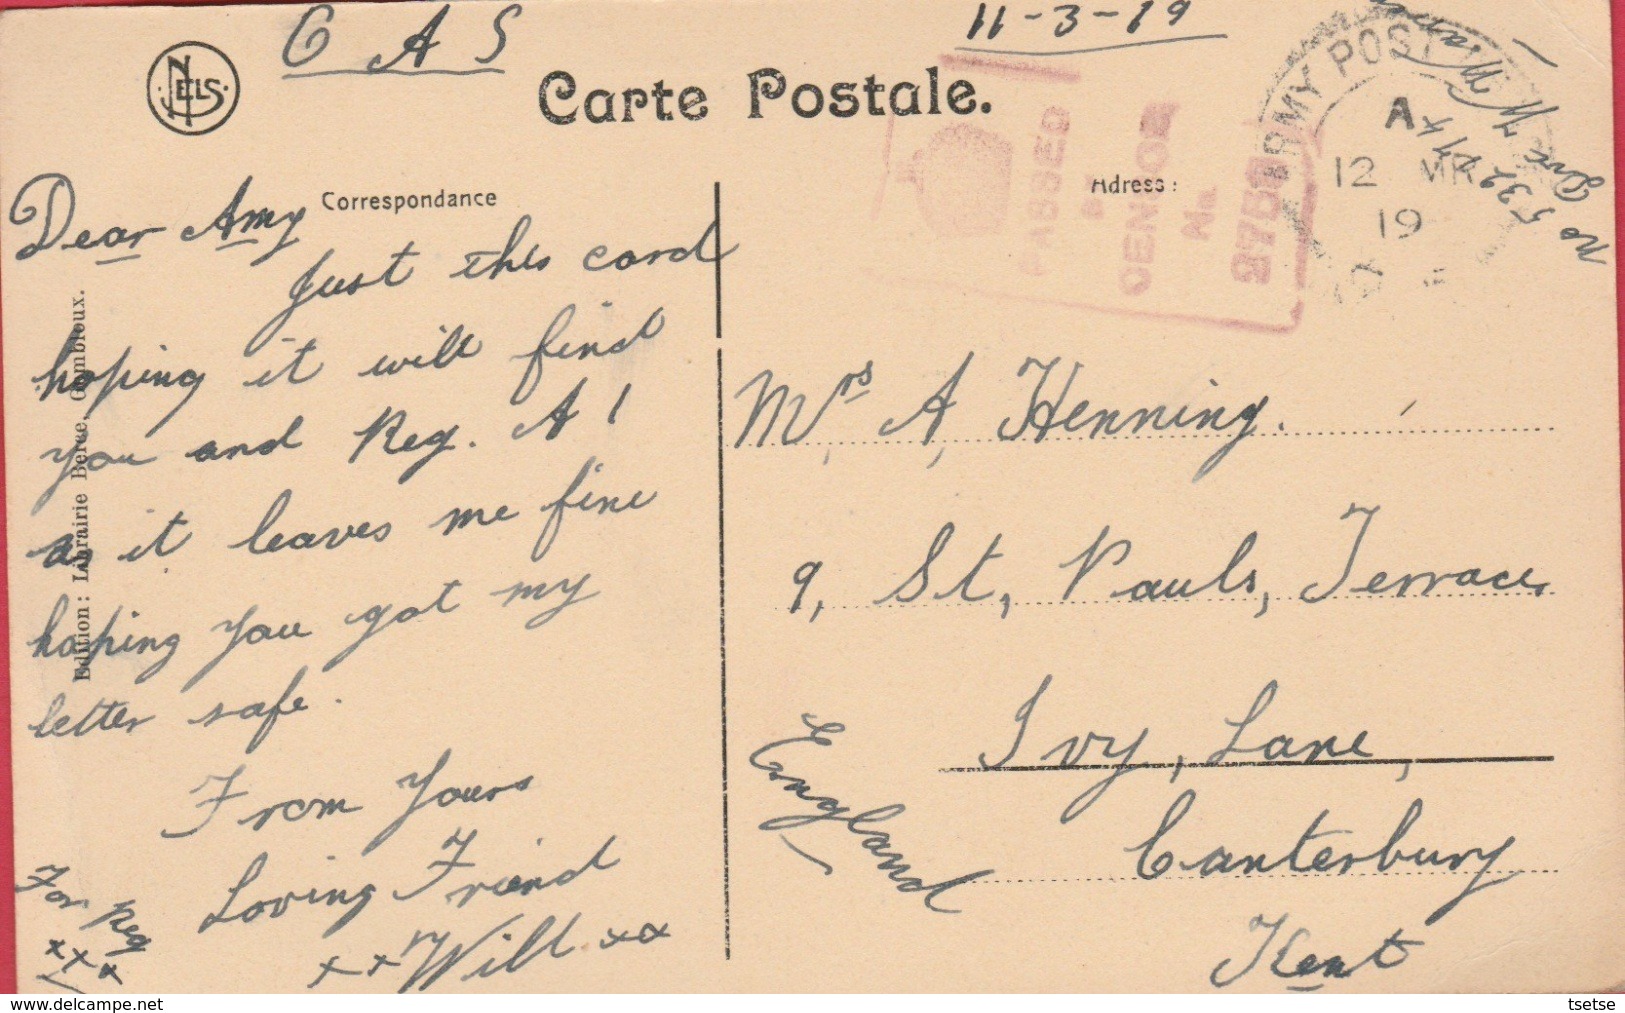 O A S
11-3-19
NELS
Carte Postale.
PASSED
BY
CENSOR
No.
ARMY POST
A
12 MR
19
No 53207
Pte
Correspondance
Adresse :
Dear Amy
Just this card
hoping it will find
you and Reg. A 1
as it leaves me fine
hoping you got my
letter safe.
From Yours
Loving Friend
x x Will x x
For Reg
x x x
Edition : Librairie Berce, Gembloux.
Mrs A, Henning.
9, St, Pauls, Terrace,
Ivy, Lane,
Canterbury
Kent
England
tsetse